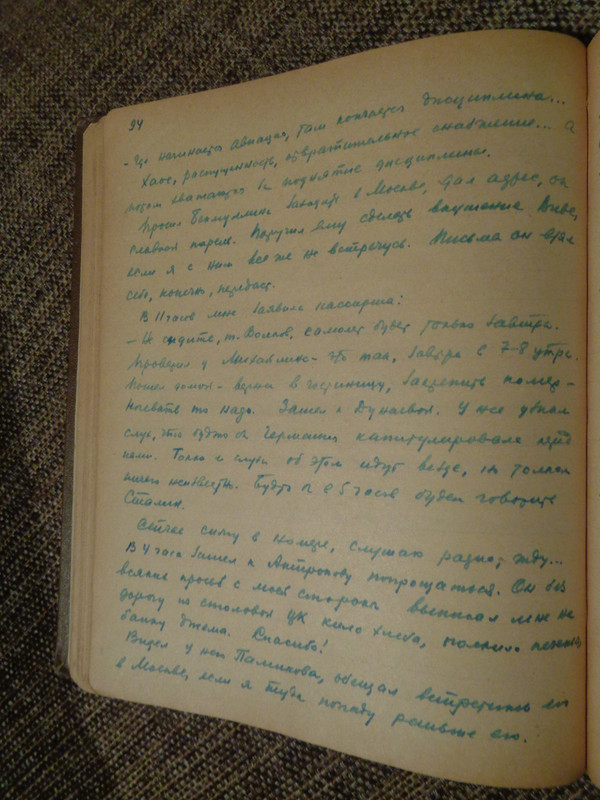 94
- Где начинается авиация, там кончается дисциплина...
Хаос, распущенность, отвратительное снабжение... А
потом хватаются за поднятие дисциплины.
Просил заходить в Москве, дал адрес, он
славный парень. Поручил ему сделать внушение
если я с ним все же не встречусь. Письма он взял
себе, конечно, передаст.
В 11 часов мне заявила пассирша:
- Не сидите, т. Волков, самолет будет только завтра.
Проверил у - Это так, завтра в 7-8 утра.
Пошел домой - вернее в гостиницу, закрепить номер -
ночевать то надо. Зашел к Дунаевой. У нее узнал
слух, что будто бы Германия капитулировала перед
нами. Толки и слухи об этом идут везде, но толком
ничего неизвестно. Будто бы в 5 часов будет говорить
Сталин.
Сейчас сижу в номере, слушаю радио, жду...
В 4 часа зашел к Антропову попрощаться. Он без
всяких просьб с моей стороны выписал мне на
дорогу из столовой ЦК кило хлеба, полкило
банку джема. Спасибо!
Видел у него обещал встретиться
в Москве, если я туда попаду раньше его.